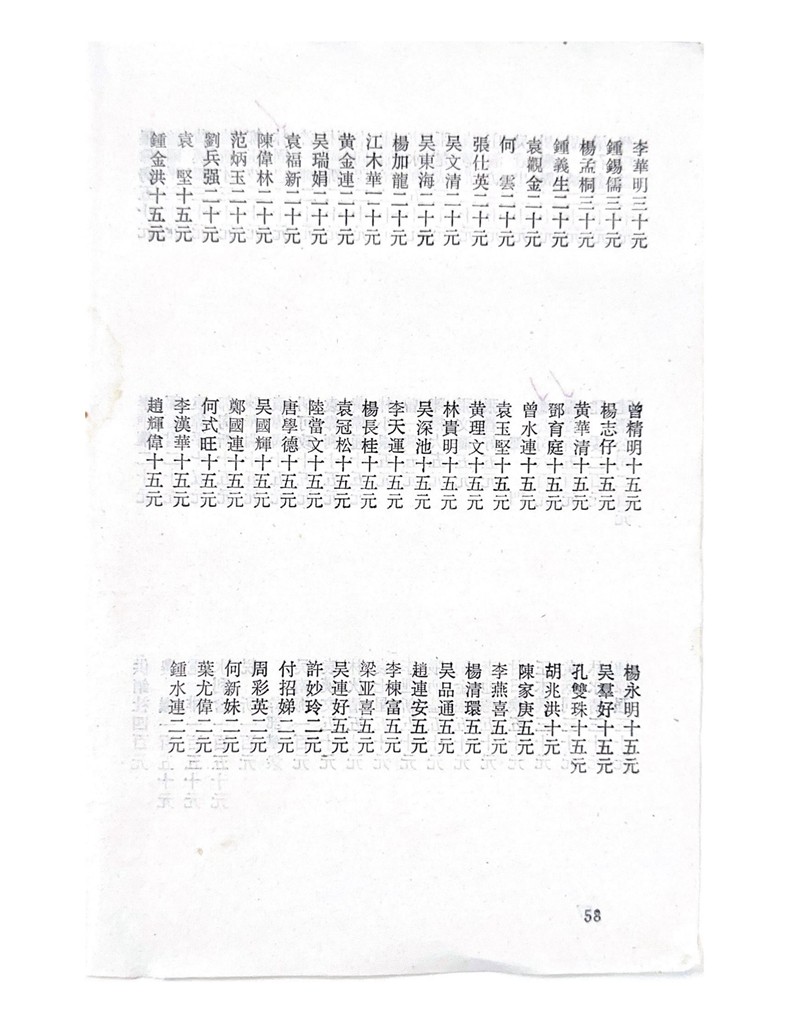 李華明三十元
鍾錫儒三十元
楊孟桐三十元
鍾義生二十元
袁觀金二十元
何　雲二十元
張仕英二十元
吴文清二十元
吴東海二十元
楊加龍二十元
江木華二十元
黄金連二十元
吴瑞娟二十元
袁福新二十元
陳偉林二十元
范炳玉二十元
劉兵强二十元
袁　堅十五元
鍾金洪十五元
曾精明十五元
楊志仔十五元
黄華清十五元
鄧育庭十五元
曾水連十五元
袁玉堅十五元
黄理文十五元
林貴明十五元
吴深池十五元
李天運十五元
楊長桂十五元
袁冠松十五元
陸當文十五元
唐學德十五元
吴國輝十五元
鄭國連十五元
何式旺十五元
李漢華十五元
趙輝偉十五元
楊永明十五元
吴羣好十五元
孔雙珠十五元
胡兆洪十元
陳家庚五元
李燕喜五元
楊清環五元
吴品通五元
趙連安五元
李棟富五元
梁亚喜五元
吴連好五元
許妙玲二元
付招娣二元
周彩英二元
何新妹二元
葉尤偉二元
鍾水連二元
58